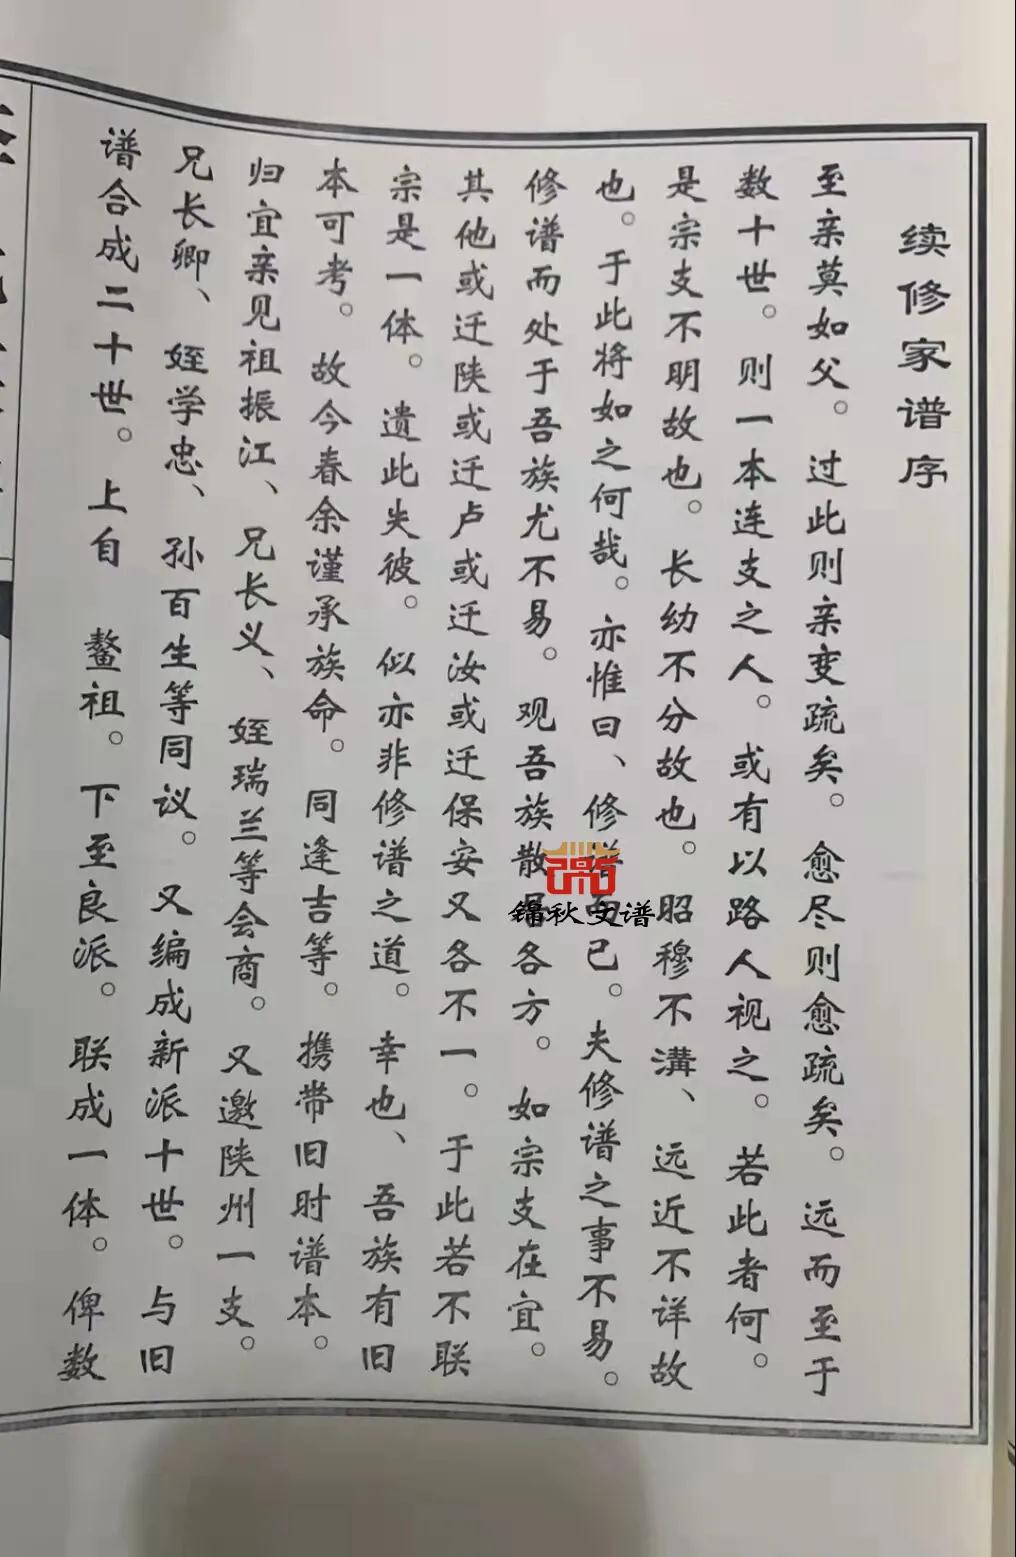 续修家谱序
至亲莫如父。过此则亲变疏矣。愈尽则愈疏矣。远而至于
数十世。则一本连支之人。或有以路人视之。若此者何。
是宗支不明故也。长幼不分故也。昭穆不溝、远近不详故
也。于此将如之何哉。亦惟曰、修谱而已。夫修谱之事不易。
修谱而处于吾族尤不易。观吾族散居各方。如宗支在宜。
其他或迁陕或迁卢或迁汝或迁保安又各不一。于此若不联
宗是一体。遗此失彼。似亦非修谱之道。幸也、吾族有旧
本可考。故今春余谨承族命。同逢吉等。携带旧时谱本。
归宜亲见祖振江、兄长义、姪瑞兰等会商。又邀陕州一支。
兄长卿、姪学忠、孙百生等同议。又编成新派十世。与旧
谱合成二十世。上自 鳌祖。下至良派。联成一体。俾数
锦秋文谱